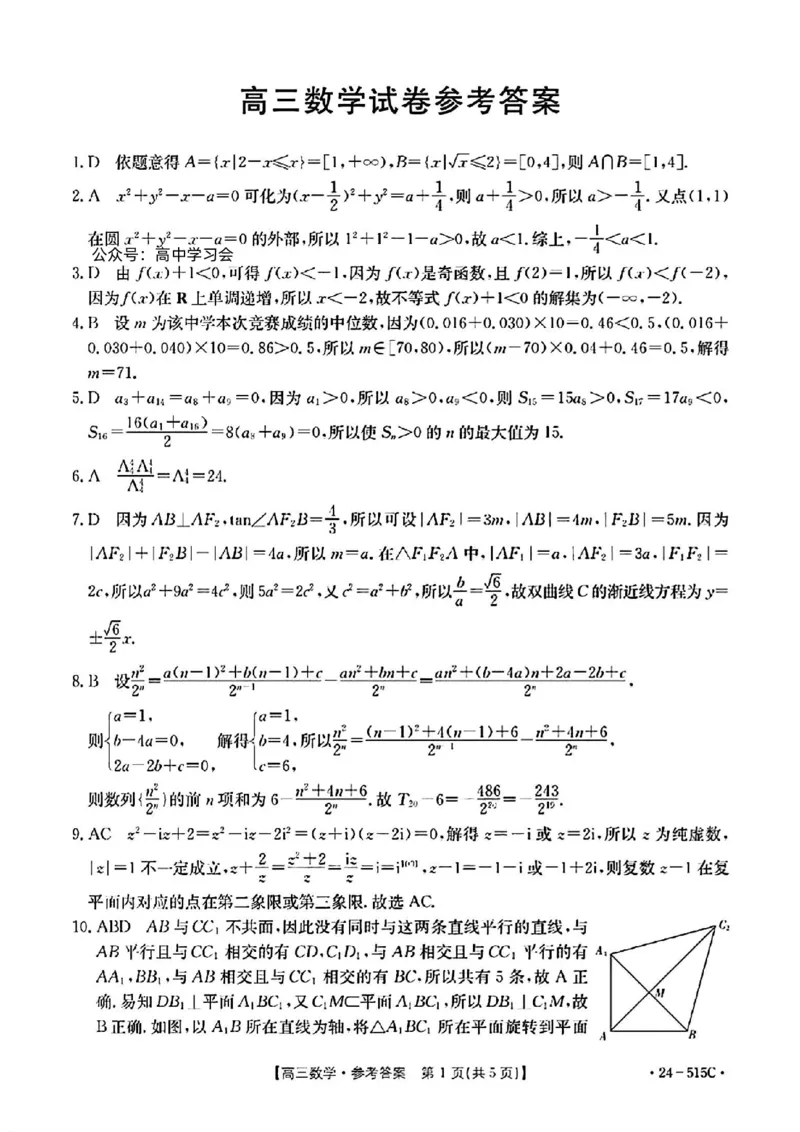 高三数学试卷参考答案
1. D 依题意得 A={x|2-x≤x}=[1,+∞),B={x|√x≤2}=[0,4],则 A∩B=[1,4].
2. A x²+y²-x-a=0 可化为(x-1/2)²+y²=a+1/4,则 a+1/4>0,所以 a>-1/4. 又点(1,1)
在圆 x²+y²-x-a=0 的外部,所以 1²+1²-1-a>0,故 a<1. 综上,-1/4<a<1.
公众号:高中学习会
3. D 由 f(x)+1<0,可得 f(x)<-1,因为 f(x)是奇函数,且 f(2)=1,所以 f(x)<f(-2),
因为f(x)在 R 上单调递增,所以 x<-2,故不等式 f(x)+1<0 的解集为(-∞,-2).
4. B 设 m 为该中学本次竞赛成绩的中位数,因为(0.016+0.030)×10=0.46<0.5,(0.016+
0.030+0.040)×10=0.86>0.5,所以 m∈[70,80),所以(m-70)×0.04+0.46=0.5,解得
m=71.
5. D a₃+a₁₄=a₈+a₉=0,因为 a₁>0,所以 a₈>0,a₉<0,则 S₁₅=15a₈>0,S₁₇=17a₉<0,
S₁₆=16(a₁+a₁₆)/2=8(a₈+a₉)=0,所以使 Sₙ>0 的 n 的最大值为 15.
6. A A₄⁴A₄⁴/A₄⁴=A₄⁴=24.
7. D 因为 AB⊥AF₂,tan∠AF₂B=4/3,所以可设|AF₂|=3m,|AB|=4m,|F₂B|=5m. 因为
|AF₂|+|F₂B|-|AB|=4a,所以 m=a. 在△F₁F₂A 中,|AF₁|=a,|AF₂|=3a,|F₁F₂|=
2c,所以a²+9a²=4c²,则 5a²=2c²,又 c²=a²+b²,所以b/a=√6/2,故双曲线 C 的渐近线方程为 y=
±√6/2 x.
8. B 设n²/2ⁿ=[a(n-1)²+b(n-1)+c]/2ⁿ⁻¹-(an²+bn+c)/2ⁿ=[an²+(b-4a)n+2a-2b+c]/2ⁿ,
则{a=1, b-4a=0, 2a-2b+c=0, 解得{a=1, b=4, c=6, 所以n²/2ⁿ=[(n-1)²+4(n-1)+6]/2ⁿ⁻¹-(n²+4n+6)/2ⁿ,
则数列{n²/2ⁿ}的前 n 项和为 6-(n²+4n+6)/2ⁿ. 故 T₂₀-6=-486/2²⁰=-243/2¹⁹.
9. AC z²-iz+2=z²-iz-2i²=(z+i)(z-2i)=0,解得 z=-i 或 z=2i,所以 z 为纯虚数,
|z|=1 不一定成立,z+2/z=(z²+2)/z=iz/z=i=i, z-1=-1-i 或-1+2i,则复数 z-1 在复
平面内对应的点在第二象限或第三象限. 故选 AC.
10. ABD AB 与 CC₁ 不共面,因此没有同时与这两条直线平行的直线,与
AB 平行且与 CC₁ 相交的有 CD,C₁D₁,与 AB 相交且与 CC₁ 平行的有
AA₁,BB₁,与 AB 相交且与 CC₁ 相交的有 BC,所以共有 5 条,故 A 正
确. 易知 DB₁⊥平面 A₁BC₁,又 C₁M⊂平面 A₁BC₁,所以 DB₁⊥C₁M,故
B 正确. 如图,以 A₁B 所在直线为轴,将△A₁BC₁ 所在平面旋转到平面
C₂
A₁
M
A
B
【高三数学·参考答案 第 1 页(共 5 页)】
·24-515C·